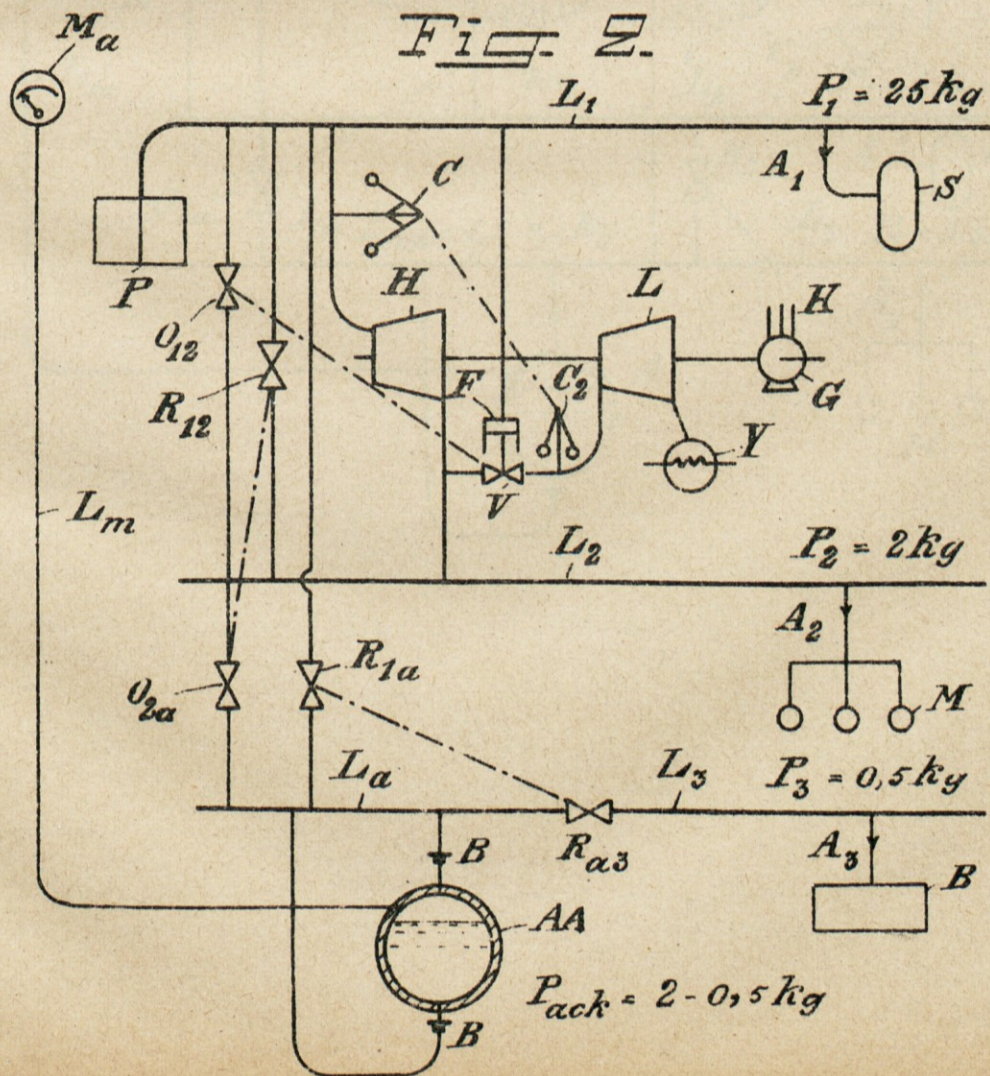 Fig. 2.
Ma
L1
P1 = 25 kg
A1
S
P
C
O12
H
L
H
R12
F
C2
G
V
Y
Lm
L2
P2 = 2 kg
A2
O2a
R1a
M
La
L3
P3 = 0,5 kg
B
Ra3
A3
B
AA
Pack = 2 - 0,5 kg
B